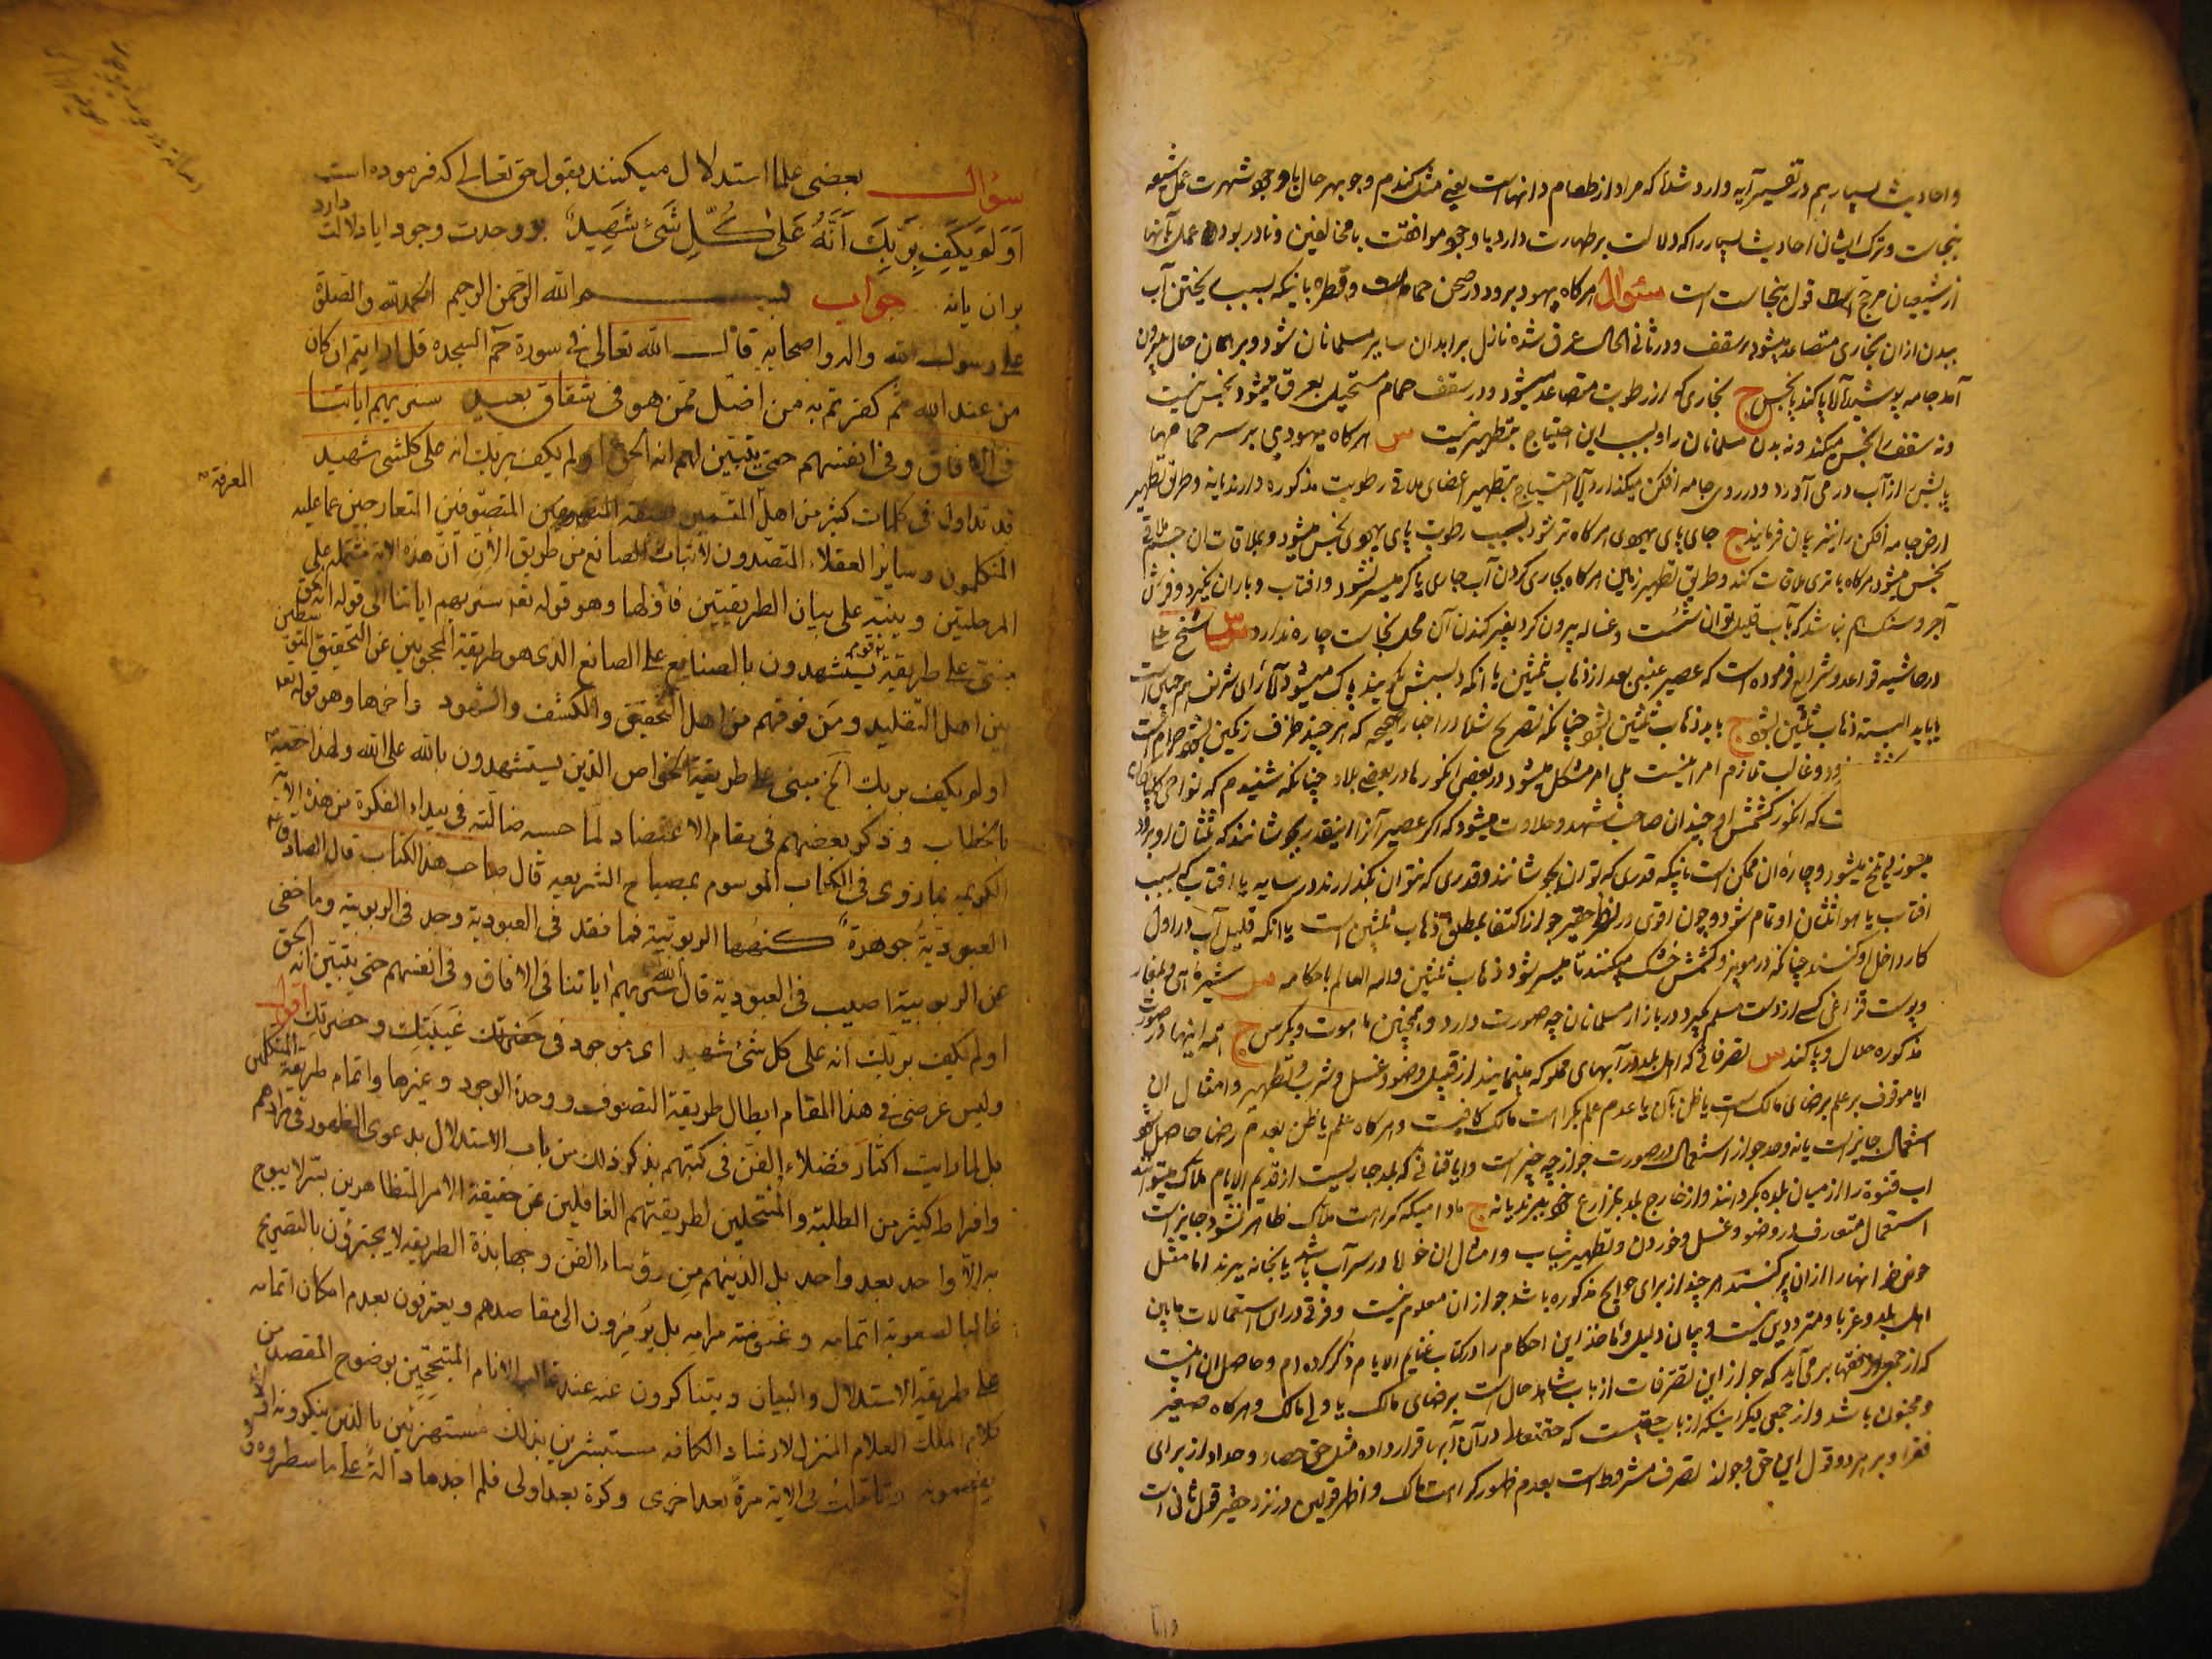 و احادیث بسیار هم در تفسیر آیه وارد شده که مراد از طعام دانهاست یعنی مثل کندم و جو بهر حال با وجود شهرت عمل شیعه
بنجاست و ترک ایشان احادیث بسیار را که دلالت بر طهارت دارد با وجود موافقت با مخالفین و نادر بودن عمل بآنها
از شیعیان مرجح قول بنجاست است سئوال هرکاه یهود برود در صحن حمام و قطره یا نیکه بسبب ریختن آب
ببدن ازان بخاری متصاعد میشود بسقف و در ثانی الحال عرق شده نازل بر ابدان سایر مسلمانان شود و بر همان حال بیرون
آمد جامه پوشید آیا پاکند یا نجس ج بخاری که از رطوبت متصاعد میشود و در سقف حمام مستحیل بعرق میشود نجس نیست
و نه سقف را نجس میکند و نه بدن مسلمانان را و بسبب این احتیاج بتطهیر نیست س هرکاه یهودی بر سر حمامها
پایش را از آب در می آورد و در روی جامه افکن میکذارد آیا احتیاج بتطهیر اعضای ملاقی رطوبت مذکوره دارند یا نه و طریق تطهیر
ارض جامه افکن را نیز بیان فرمایند ج جای پای یهودی هرکاه تر شود بسبب رطوبت پای یهودی نجس میشود و بملاقات ان جسم ملاقی
نجس میشود هرکاه با تری ملاقات کند و طریق تطهیر زمین هرکاه بجاری کردن آب جاری یا کر میسر نشود و افتاب و باران نکیرد و فرش
آجر و سنک هم نباشد که بآب قلیل توان شست و غساله بیرون کرد بغیر کندن آن محل نجاست چاره ندارد س شیخ علی
در حاشیه قواعد و شرایع فرموده است که عصیر عنبی بعد از ذهاب ثلثین یا انکه دبسش نکویند پاک میشود آیا رای شریف هم چنین است
یا باید البته ذهاب ثلثین بشود ج باید ذهاب ثلثین بشود چنانکه تصریح شده در اخبار صحیحه که هر چیند ظرف رنکین بشود حرام است
و غالب تلازم امر انیست بلی امر مشکل میشود در بعضی انکورها در بعضی بلاد چنانکه شنیدم که نواحی
که انکور کشمش او چندان صاحب شهد و حلاوت میشود که اکر عصیر آنرا اینقدر بجوشانند که ثلثان او برود
میسوزد یا تلخ میشود و چاره ان ممکن است باینکه قدری که توان بجوشانند و قدری که نتوان بکذارند در سایه یا افتاب که بسبب
افتاب یا هوا ثلثان او تمام شود و چون اقوی در نظر حقیر جواز اکتفا بمطلق ذهاب ثلثین است یا انکه قلیل آب در اول
کار داخل او کنند چنانکه در مویز و کشمش خشک میکنند تا میسر شود ذهاب ثلثین والله العالم باحکامه س
و پوست کسی از دست مسلم بکیرد در بازار مسلمانان چه صورت دارد و همچنین ج همه اینها در صورت
مذکوره حلال و پاکند س تصرفاتی که اهل بلد در آبهای مملوکه مینمایند از قبیل وضو و غسل و شرب و تطهیر و امثال ان
ایا موقوف بر علم برضای مالک است یا ظن بآن یا عدم علم بکراهت مالک کافیست و هرکاه علم یا ظن بعدم رضا حاصل شود
استعمال جایز است یا نه و حد جواز استعمال در صورت جواز چه چیز است و ایا قناتی که بلد جاریست از قدیم الایام ملاک
اب قنوة را از میان بلده بکردانند و از خارج بلد بمزارع خود ببرند یا نه ج مادامیکه کراهت ملاک ظاهر نشود جایز است
استعمال متعارف در وضو و غسل و خوردن و تطهیر ثیاب و امثال ان خواه در سر آب باشد یا بخانه ببرند اما مثل
حوض خانها را ازان پر کنند هر چند از برای حوایج مذکوره باشد جواز ان معلوم نیست و فرقی در این استعمالات مابین
اهل بلد و غربا و مترددین نیست و بیان دلیل و ماخذ این احکام را در کتاب غنایم الایام ذکر کرده ام و حاصل ان اینست
که از جمعی از فقها بر می آید که جواز این تصرفات از باب شاهد حال است برضای مالک یا ولی مالک و هرکاه صغیر
و مجنون باشد و از جمعی دیکر اینکه از باب حقیست که حقتعالی در آن آبها قرار داده مثل حق حصاد و جداد از برای
فقرا و بر هر دو قول این حق و جواز تصرف مشروط است بعدم ظهور کراهت مالک و اظهر قولین در نزد حقیر قول ثانی است
سؤال بعضی علما استدلال میکنند بقول حق تعالی که فرموده است
اَوَلَمْ یَکْفِ بِرَبِّکَ اَنَّهُ عَلیٰ کُلِّ شَیْءٍ شَهیدٌ بر وحدت وجود ایا دلالت دارد
بران یا نه جواب بسم الله الرحمن الرحیم الحمد لله والصلوة
علی رسول الله واله واصحابه قال الله تعالی فی سورة حم السجده قل ارایتم ان کان
من عند الله ثم کفرتم به من اضل ممن هو فی شقاق بعید سنریهم ایاتنا
فی الافاق وفی انفسهم حتی یتبین لهم انه الحق اولم یکف بربک انه علی کلشی شهید
قد تداول فی کلمات کثیر من اهل المتصوفین المتعارجین عما علیه
المعرفة
المتکلمون وسایر العقلاء المتصدون لاثبات الصانع من طریق الان ان هذه الایة مشتملة علی
المرحلتین و یبتنی علی بیان الطریقتین فاولها وهو قوله تعالی سنریهم ایاتنا الی قوله انه الحق
مبنی علی طریقة قوم یستشهدون بالصنایع علی الصانع الذی هو طریقة المحجوبین عن التحقیق المتوسطین
بین اهل التقلید ومن فوقهم من اهل التحقیق والکشف والشهود واخرها وهو قوله تعالی
اولم یکف بربک الخ مبنی علی طریقة الخواص الذین یستشهدون بالله علی الله ولهذا خصه
بالخطاب وذکر بعضهم فی مقام الاعتضاد لما حسبه ضالته فی بیداء الفکرة من هذه الایة
الکریمه بما روی فی الکتاب الموسوم بمصباح الشریعه قال صاحب هذا الکتاب قال الصادق
العبودیةُ جوهرةٌ کنهها الربوبیة فما فقد فی العبودیة وجد فی الربوبیة وما خفی
عن الربوبیة اصیب فی العبودیة قال الله سنریهم ایاتنا فی الافاق وفی انفسهم حتی یتبین انه الحق
اولم یکف بربک انه علی کل شیء شهید ای موجود فی غَیبَتِک وحضرتک اقول
ولیس غرضی فی هذا المقام ابطال طریقة التصوف ووحدة الوجود وغیرها واتمام طریقة المتکلمین
بل لما رایت اکثار فضلاء الفن فی کتبهم بذکر ذلک من باب الاستدلال بدعوی الظهور فی مرادهم
وافراط کثیر من الطلبة والمنتحلین لطریقتهم الغافلین عن حقیقة الامر المتظاهرین بسر لا یبوح
به الا واحد بعد واحد بل الذینهم من رؤساء الفن وجهابذة الطریقه لا یجترؤن بالتصریح
غالبا لصعوبة اتمامه وغموضة مرامه بل یُومزون الی مقاصدهم ویعترفون بعدم امکان اتمامه
علی طریقة الاستدلال والبیان ویتناکرون عنه عند غالب الانام المتبجحین بوضوح المقصد من
کلام الملک العلام المنزل لارشاد الکافه مستبشرین بذلک مستهزئین بالذین ینکرونه
یفهمونه وتاملت فی الایة مرة بعد اخری وکرة بعد اولی فلم اجدها دالةً علی ما سطروه